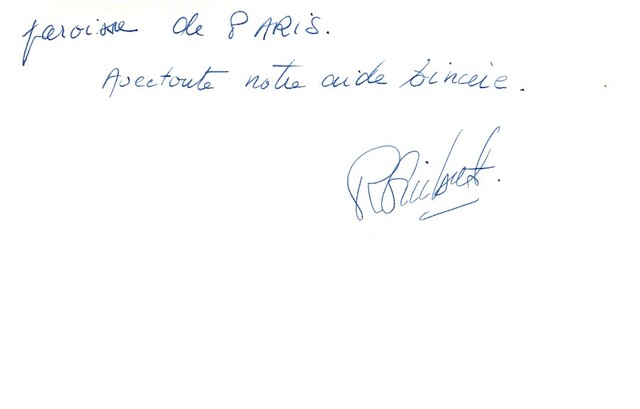 paroisse de PARIS.
Avec toute notre aide sincère.